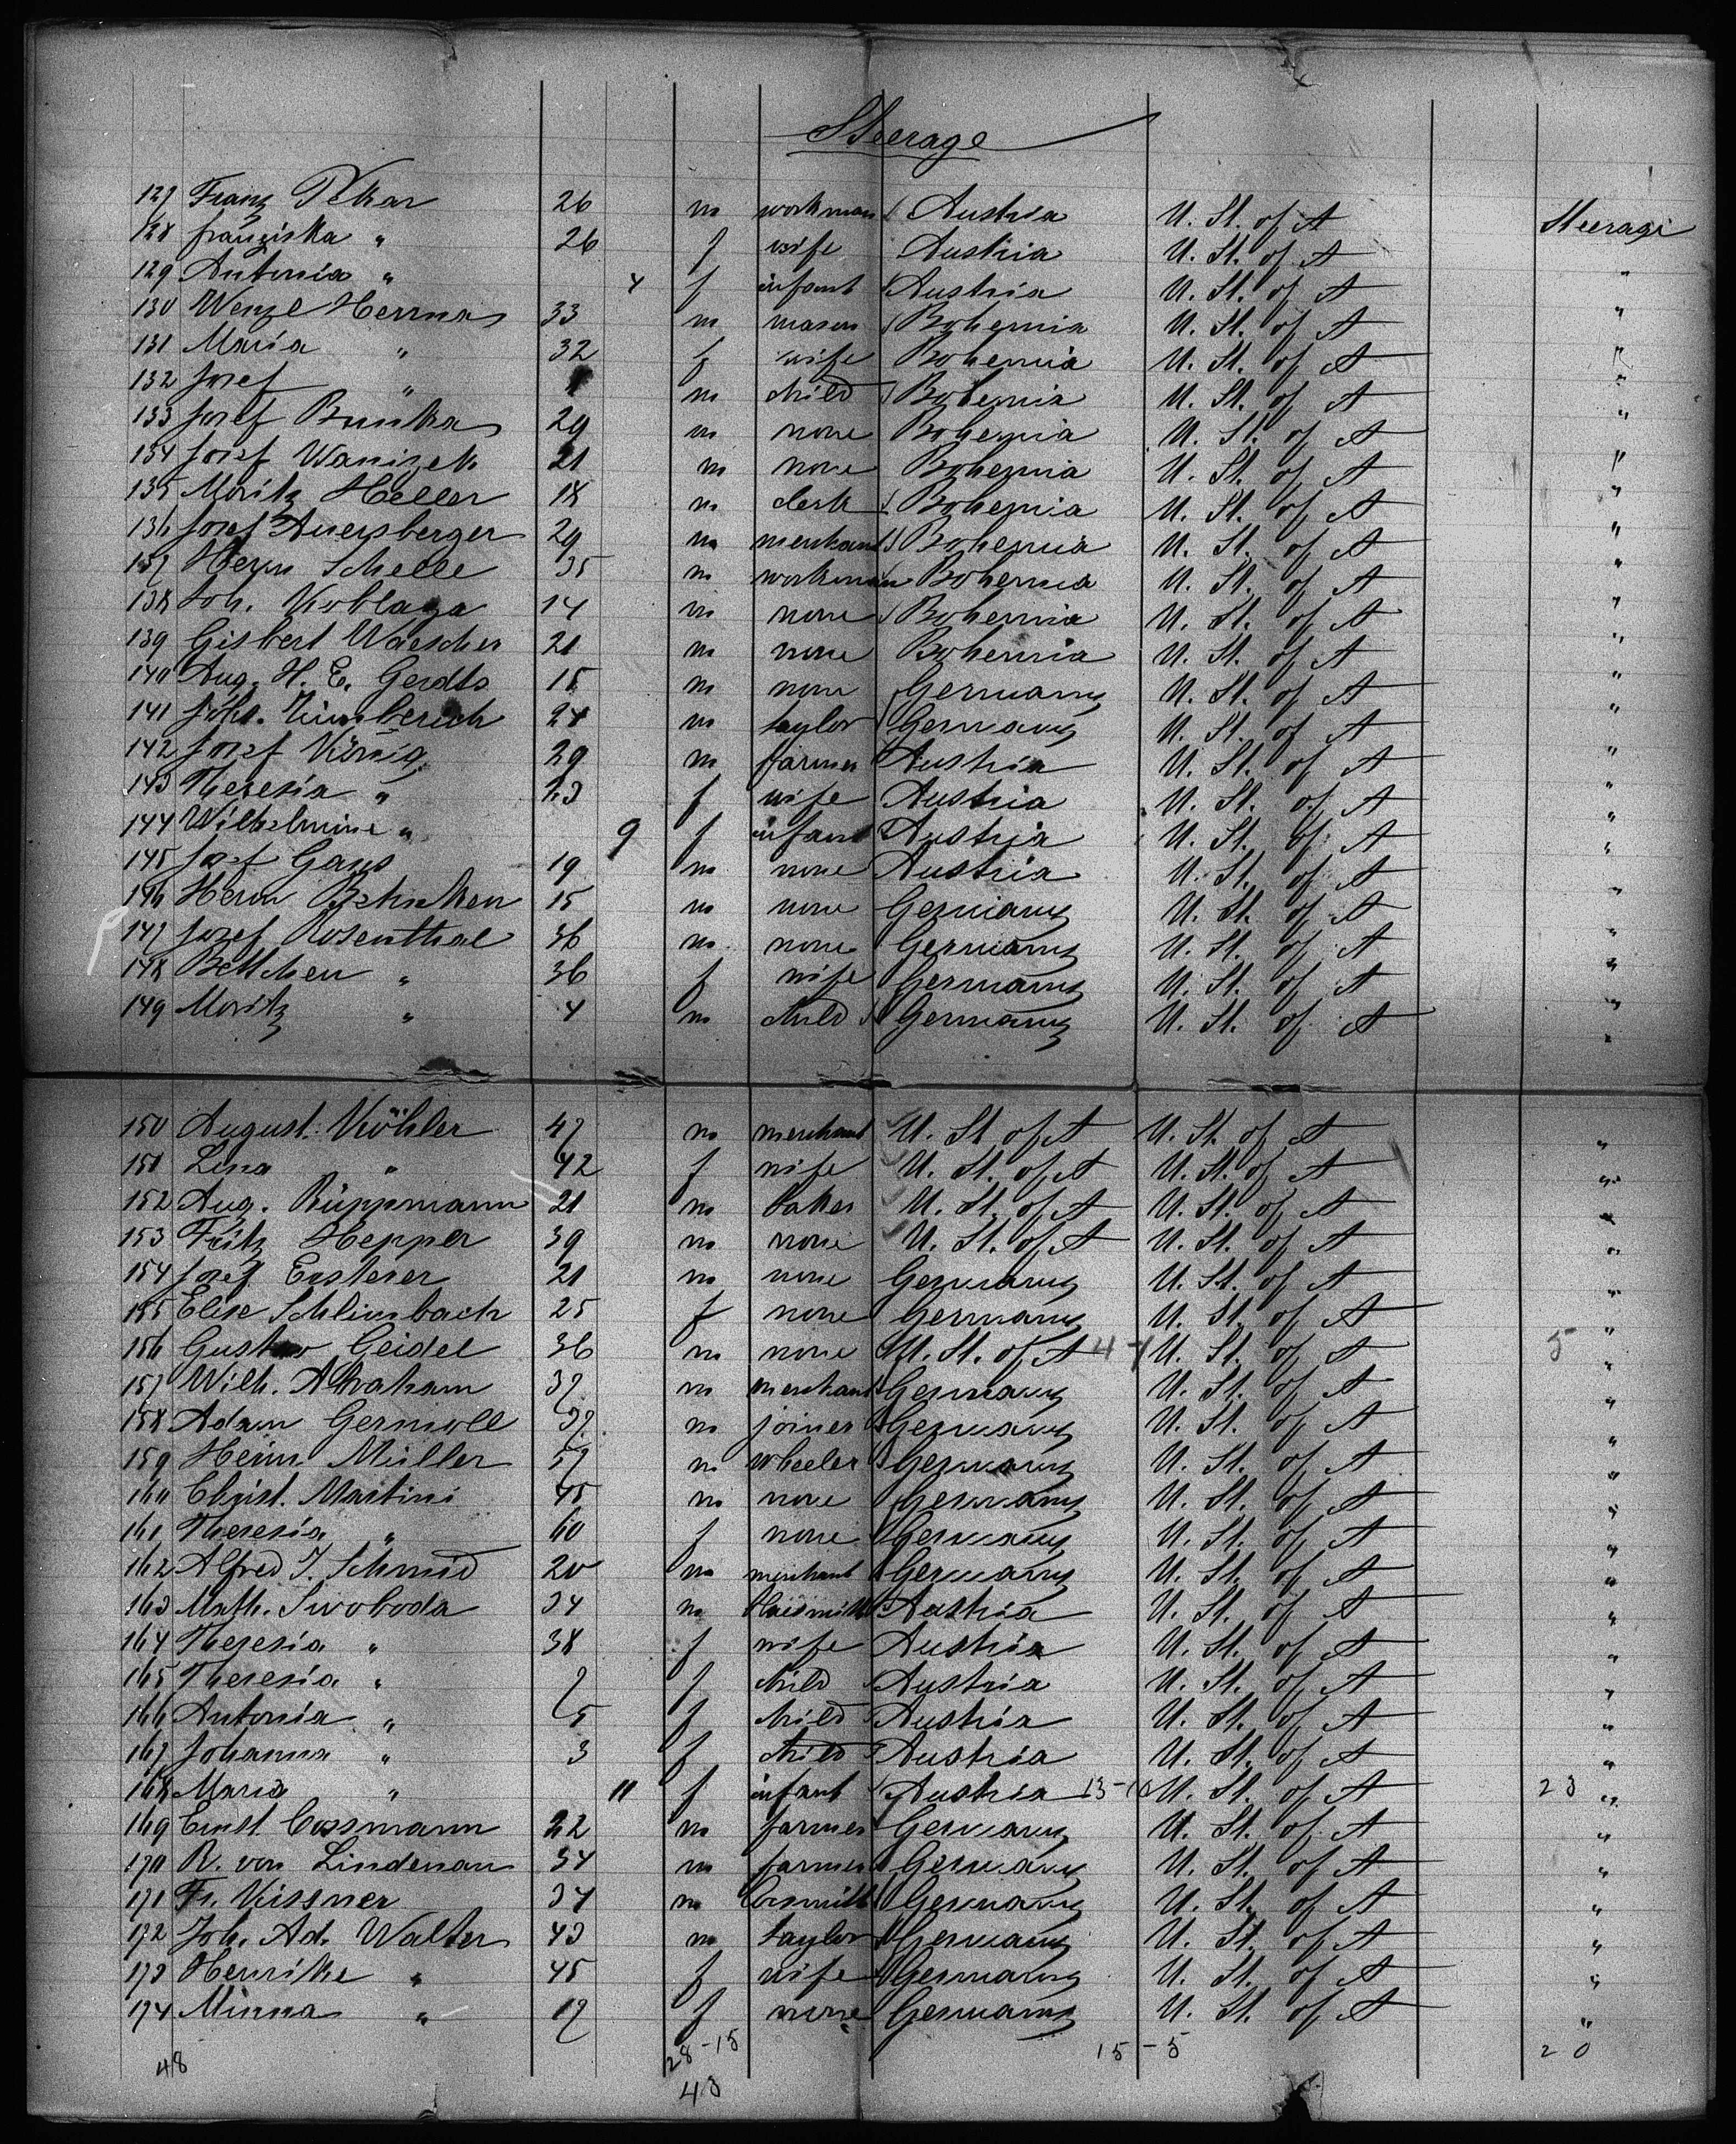 Steerage
127 Franz Pekar 26 m workman Austria U. St. of A Steerage
128 Franziska " 26 f wife Austria U. St. of A "
129 Antonia " 4 f infant Austria U. St. of A "
130 Wenzl Herrmas 33 m mason Bohemia U. St. of A "
131 Maria " 32 f wife Bohemia U. St. of A "
132 Josef " m child Bohemia U. St. of A "
133 Josef Bunka 29 m none Bohemia U. St. of A "
134 Josef Wanizek 21 m none Bohemia U. St. of A "
135 Moritz Heller 18 m clerk Bohemia U. St. of A "
136 Josef Auersberger 29 m merchant Bohemia U. St. of A "
137 Herm Schelle 35 m workman Bohemia U. St. of A "
138 Joh. Koblaza 14 m none Bohemia U. St. of A "
139 Gisbert Waescher 21 m none Bohemia U. St. of A "
140 Aug. H. E. Gerdts 15 m none Germany U. St. of A "
141 Joh. 24 m taylor Germany U. St. of A "
142 Josef König 29 m farmer Austria U. St. of A "
143 Theresia " 23 f wife Austria U. St. of A "
144 Wilhelmine " 9 f infant Austria U. St. of A "
145 Josef Gans 19 m none Austria U. St. of A "
146 Herm 15 m none Germany U. St. of A "
147 Josef Rosenthal 36 m none Germany U. St. of A "
148 Bettchen " 36 f wife Germany U. St. of A "
149 Moritz " 4 m child Germany U. St. of A "
150 August Köhler 47 m merchant U. St. of A U. St. of A "
151 Lina " 42 f wife U. St. of A U. St. of A "
152 Aug. Rüppmann 21 m baker U. St. of A U. St. of A "
153 Fritz Hepper 39 m none U. St. of A U. St. of A "
154 Josef Ersterer 21 m none Germany U. St. of A "
155 Elise Schlimbach 25 f none Germany U. St. of A "
156 Gustav Geidel 36 m none U. St. of A 4-1 U. St. of A 5 "
157 Wilh. Abraham 37 m merchant Germany U. St. of A "
158 Adam Germoll 37 m joiner Germany U. St. of A "
159 Heinr. Müller 57 m wheeler Germany U. St. of A "
160 Christ. Martini 45 m none Germany U. St. of A "
161 Theresia " 60 f none Germany U. St. of A "
162 Alfred J. Schmid 20 m merchant Germany U. St. of A "
163 Math. Swoboda 34 m Austria U. St. of A "
164 Theresia " 38 f wife Austria U. St. of A "
165 Theresia " 7 f child Austria U. St. of A "
166 Antonia " 5 f child Austria U. St. of A "
167 Johanna " 3 f child Austria U. St. of A "
168 Maria " 11 f infant Austria 13-10 U. St. of A 23 "
169 Ernst Cossmann 22 m farmer Germany U. St. of A "
170 R. von Lindenau 34 m farmer Germany U. St. of A "
171 Fr. Kissner 34 m Germany U. St. of A "
172 Joh. Ad. Walter 43 m taylor Germany U. St. of A "
173 Henrike " 45 f wife Germany U. St. of A "
174 Minna " 17 f none Germany U. St. of A "
48 28-15 15-5 20
43